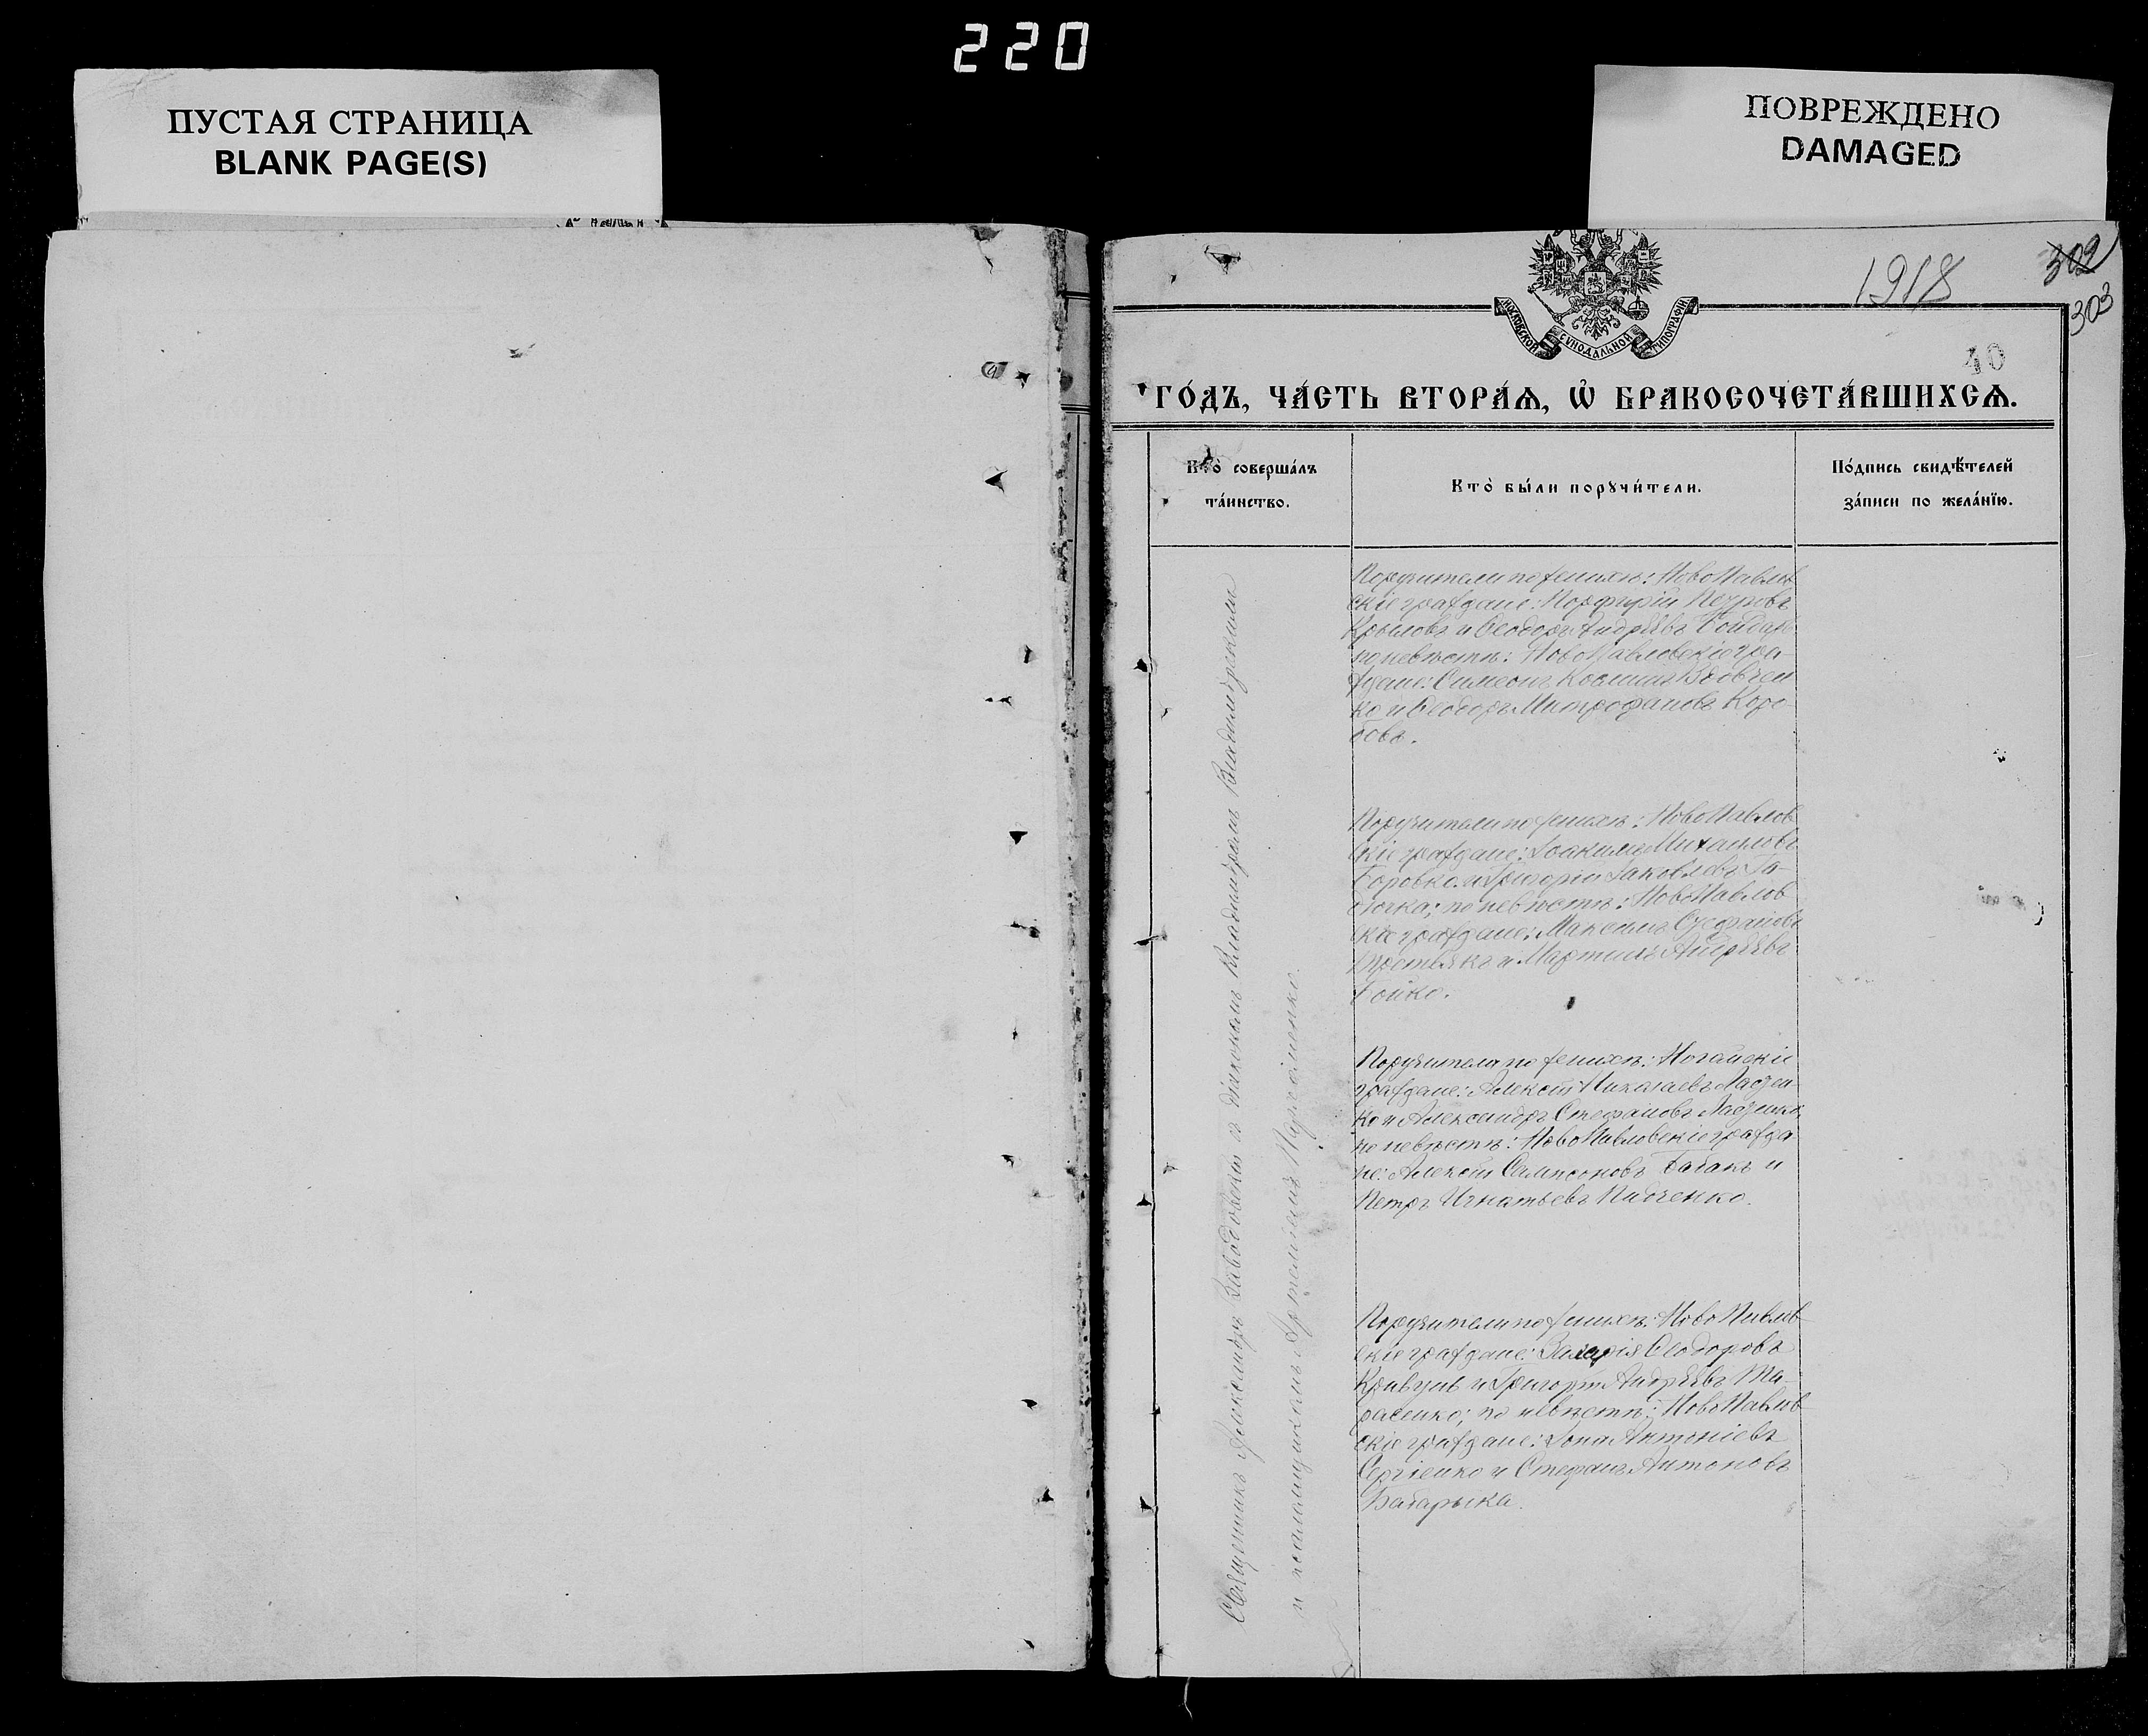 220
ПУСТАЯ СТРАНИЦА
BLANK PAGE(S)
ПОВРЕЖДЕНО
DAMAGED
1918
302
303
МОСКОВСКОЙ СѴНОДАЛЬНОЙ ТИПОГРАФІИ
40
ГО́ДЪ, ЧА́СТЬ ВТОРА́Ѧ, Ѽ БРАКОСОЧЕТА́ВШИХСѦ.
Кто̀ соверша́лъ
та́инство.
Кто̀ бы́ли порꙋчи́тели.
По́дпись свидѣ́телей
за́писи по жела́нїю.
Священникъ Александръ Завадовскій съ діакономъ Владиміромъ Владимірскимъ
и псаломщикомъ
Поручители по женихѣ: НовоПавлов
скіе граждане: Порфирій Петровъ
Крыловъ и Ѳеодоръ Андреевъ
по невѣстѣ: НовоПавловскіе гра-
ждане: Симеонъ Косминъ Вдовчен
ко и Ѳеодоръ Митрофановъ Коро-
бовъ.
Поручители по женихѣ: НовоПавлов
скіе граждане: Іоакимъ Михаиловъ
Боровко и Григорій Іаковлевъ Га-
по невѣстѣ: НовоПавлов
скіе граждане: Максимъ Стефановъ
и Мартинъ Андреевъ
Бойко.
Поручители по женихѣ: Ногайскіе
граждане: Алексѣй Николаевъ Ладзен-
ко и Александръ Стефановъ Ладзенко
по невѣстѣ: НовоПавловскіе гражда-
не: Алексѣй Сампсоновъ Бабакъ и
Петръ Игнатьевъ
Поручители по женихѣ: НовоПавлов-
скіе граждане: Захарія Ѳеодоровъ
Кривунь и Григорій Андреевъ Та-
расенко; по невѣстѣ: НовоПавлов-
скіе граждане: Іона Антоніевъ
Сергіенко и Стефанъ Антоновъ
Бабарыка.